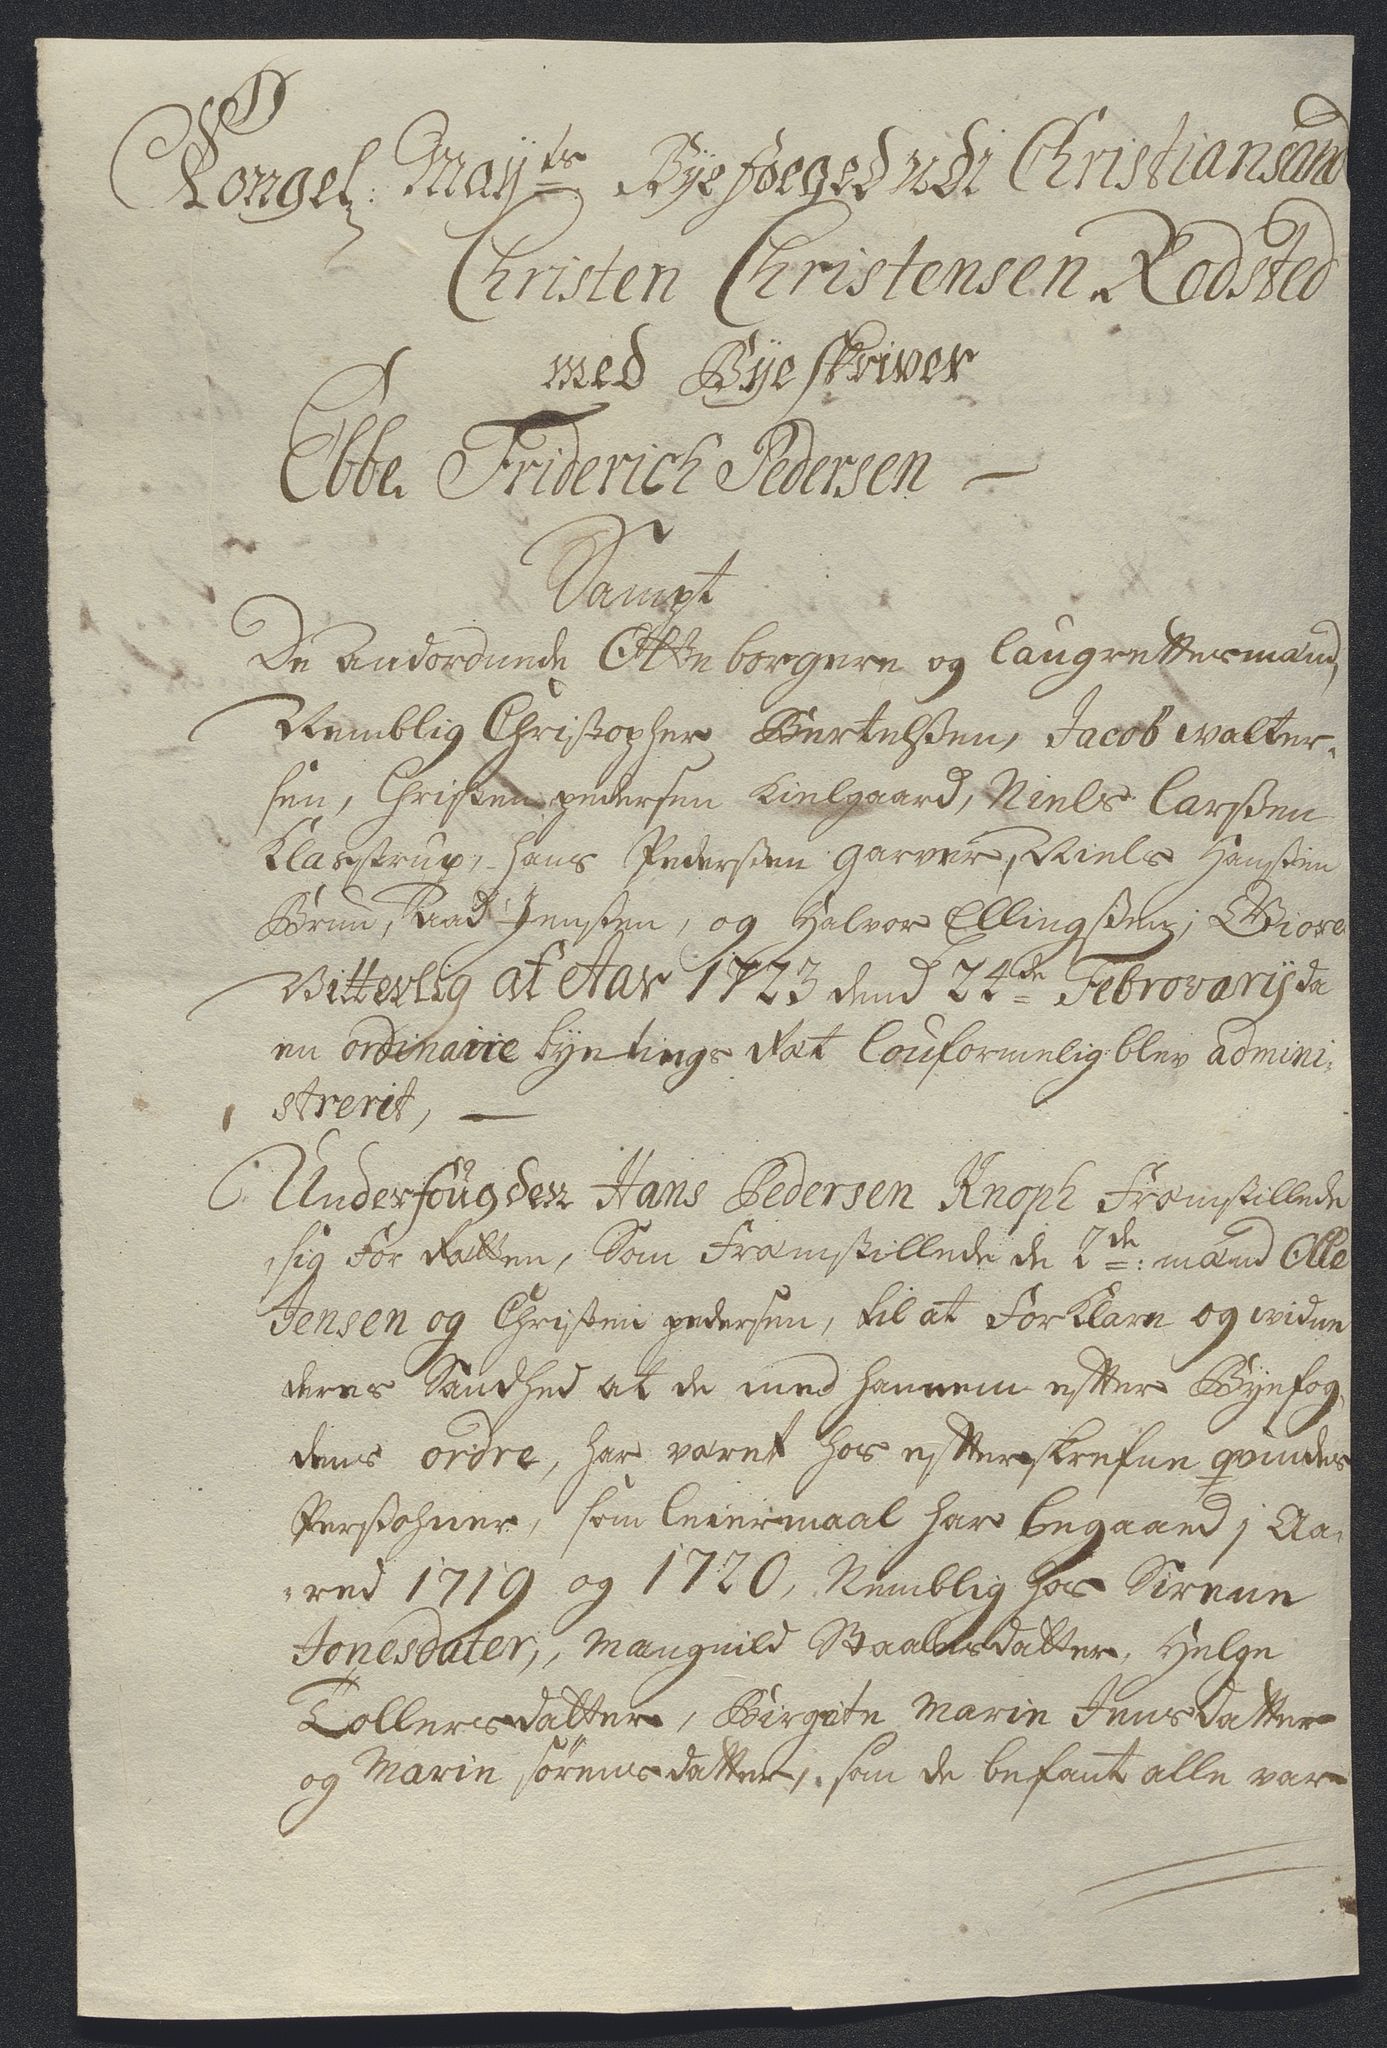 Kongel: May<sup>ts</sup> Byefoeged udi Christiansand
Christen Christensen Rodsted
med Byeskriver
Ebbe Friderich Pedersen —
Sampt
De Anordnede Otte borgere og Laugrettesmænd,
Nemblig Christopher Bertelsen, Jacob walter-
sen, Christen pedersen Kielgaard, Niels Larsen
Klarstrup, Hans Pedersen garver, Niels Hansen
Brun, Aad Jensen, og Halvor Ellingsen; Giøre
Vitterlig at Aar 1723 dend 24<sup>de</sup> Febrovarij da
en ordinairie byetings Ræt louformelig blev admini-
strerit, —
Underfougden Hans Pedersen Knoph Fremstillede
sig For Retten, Som Fremstillede de 2<sup>de</sup>: mænd Olle
Jensen og Christen pedersen, til at ForKlare og widne
deres Sandhed at de med hannem efter Byefog-
dens ordre, har været hos efterskrefne qvindes
Persohner, som leiermaal har begaaed i Aa-
red 1719 og 1720, Nemblig hos Sirene
Jonesdater, Mangnild Staalesdatter, Helge
Tollersdatter, Birgite Marie Jensdatter
og Marie Sørensdatter, som de befant alle var